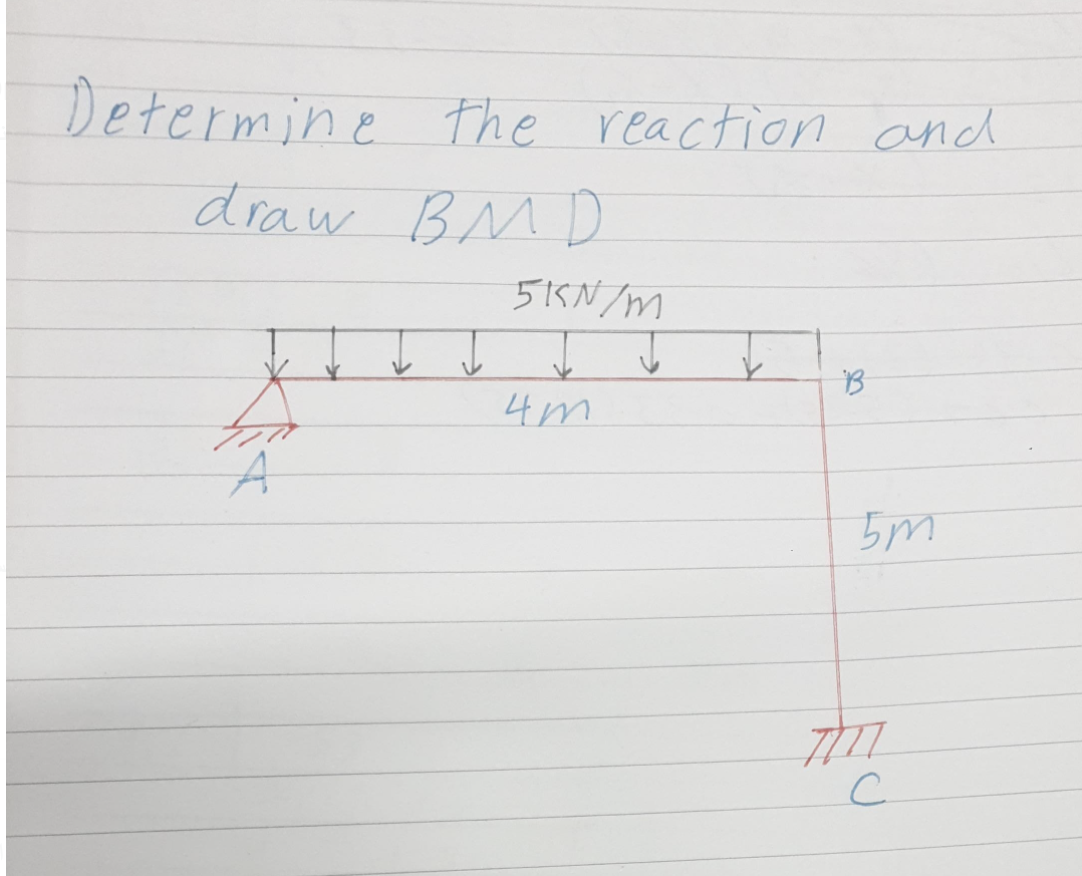 Determine the reaction and
draw BMD
5KN/m
B
4m
A
5m
C